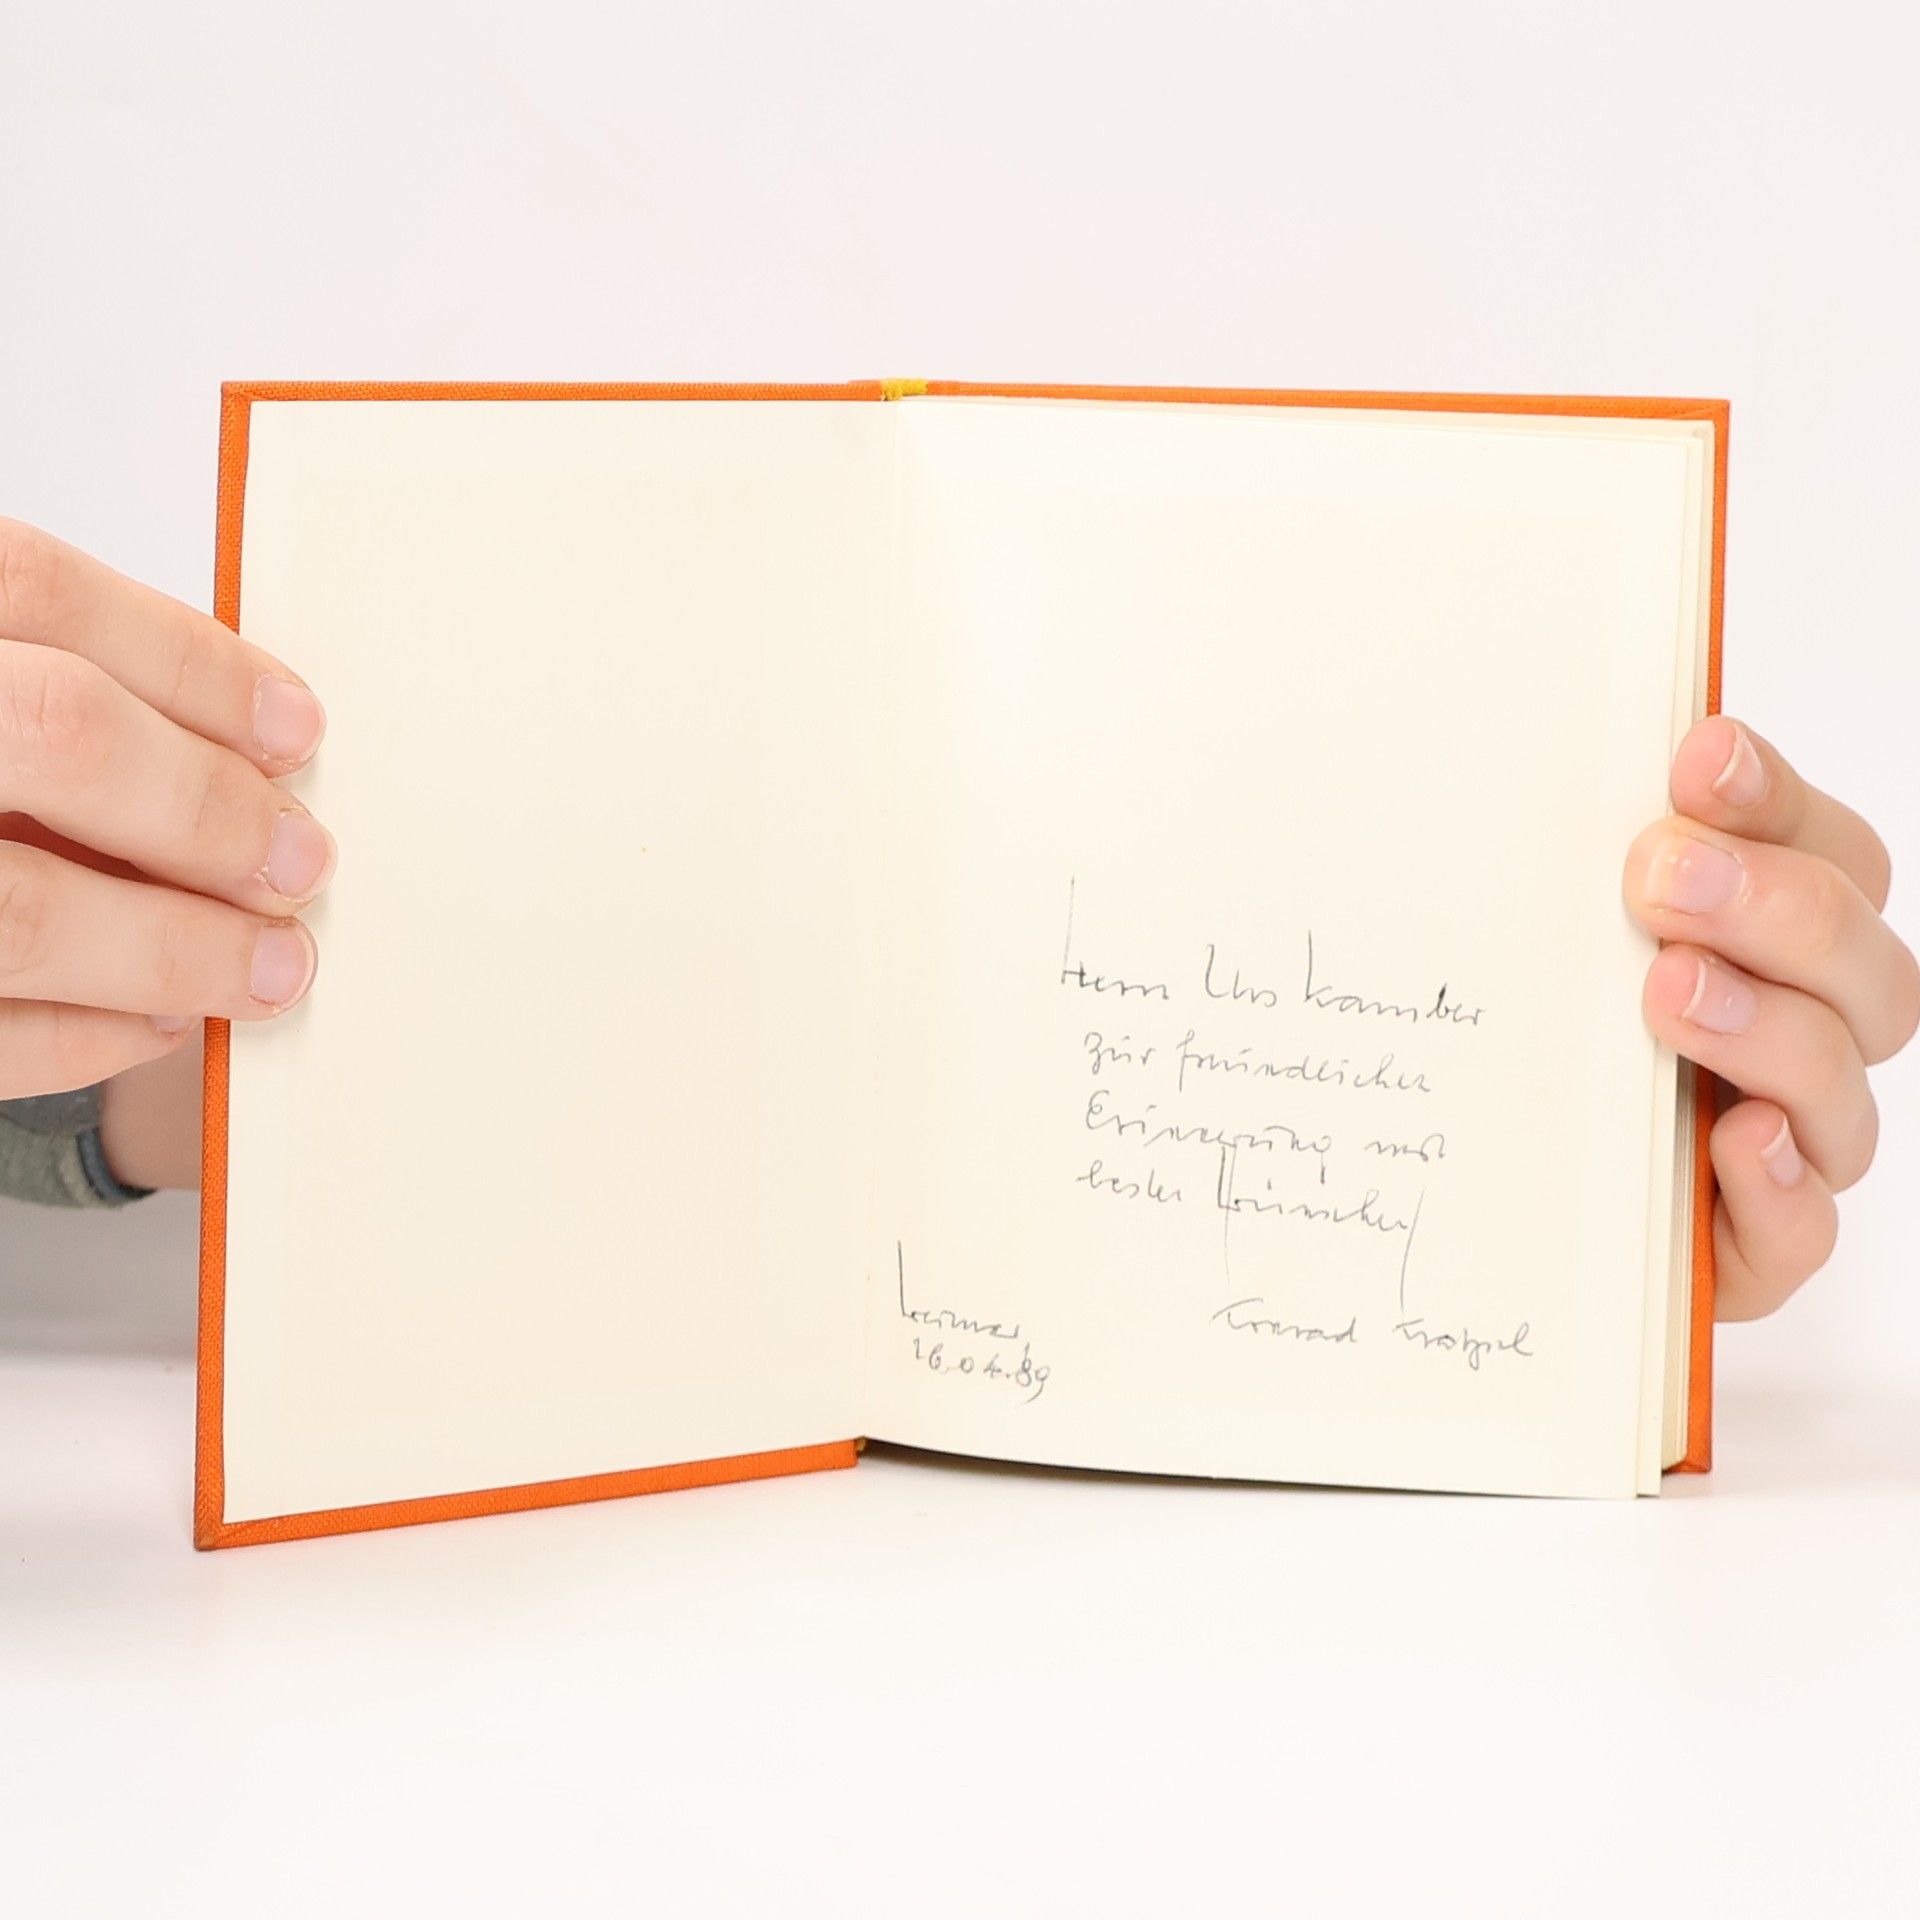 Herrn Urs Kamber
zur freundlichen
Erinnerung mit
besten Wünschen
Konrad Kratzsch
Weimar,
16.04.89